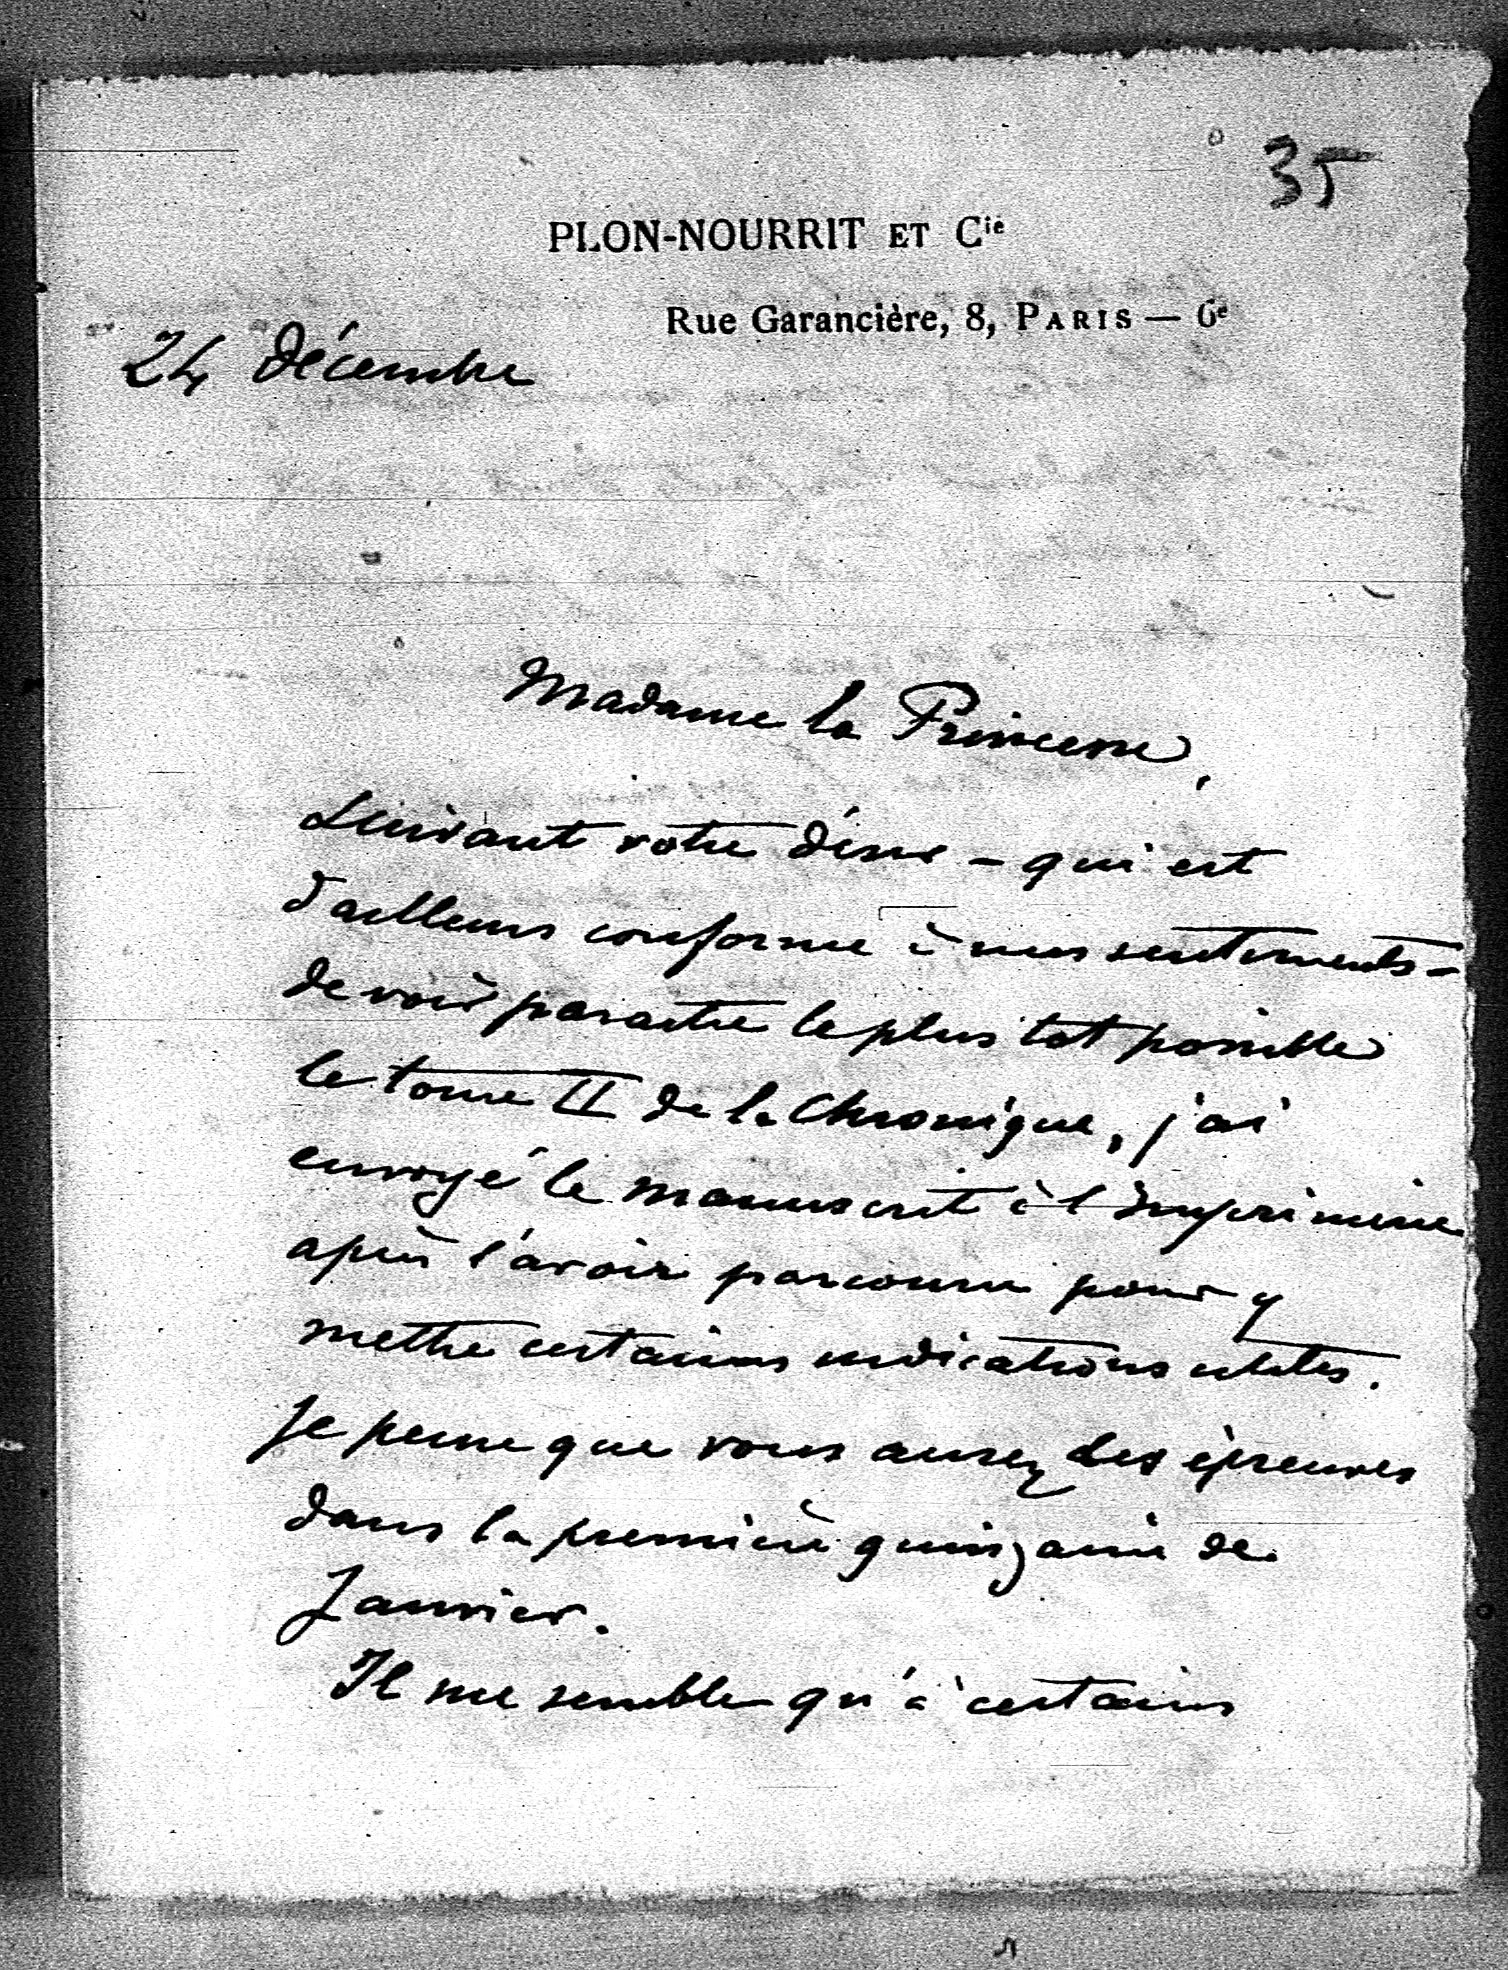 35
PLON-NOURRIT ET Cie
Rue Garancière, 8, PARIS — 6e
24 décembre
Madame la Princesse,
Suivant votre désir - qui est
d'ailleurs conforme à mes sentiments -
de voir paraitre le plus tot possible
le tome II de la Chronique, j'ai
envoyé le manuscrit à l'Imprimerie
après l'avoir parcouru pour y
mettre certaines indications utiles.
Je pense que vous aurez des épreuves
dans la première quinzaine de
Janvier.
Il me semble qu'à certains